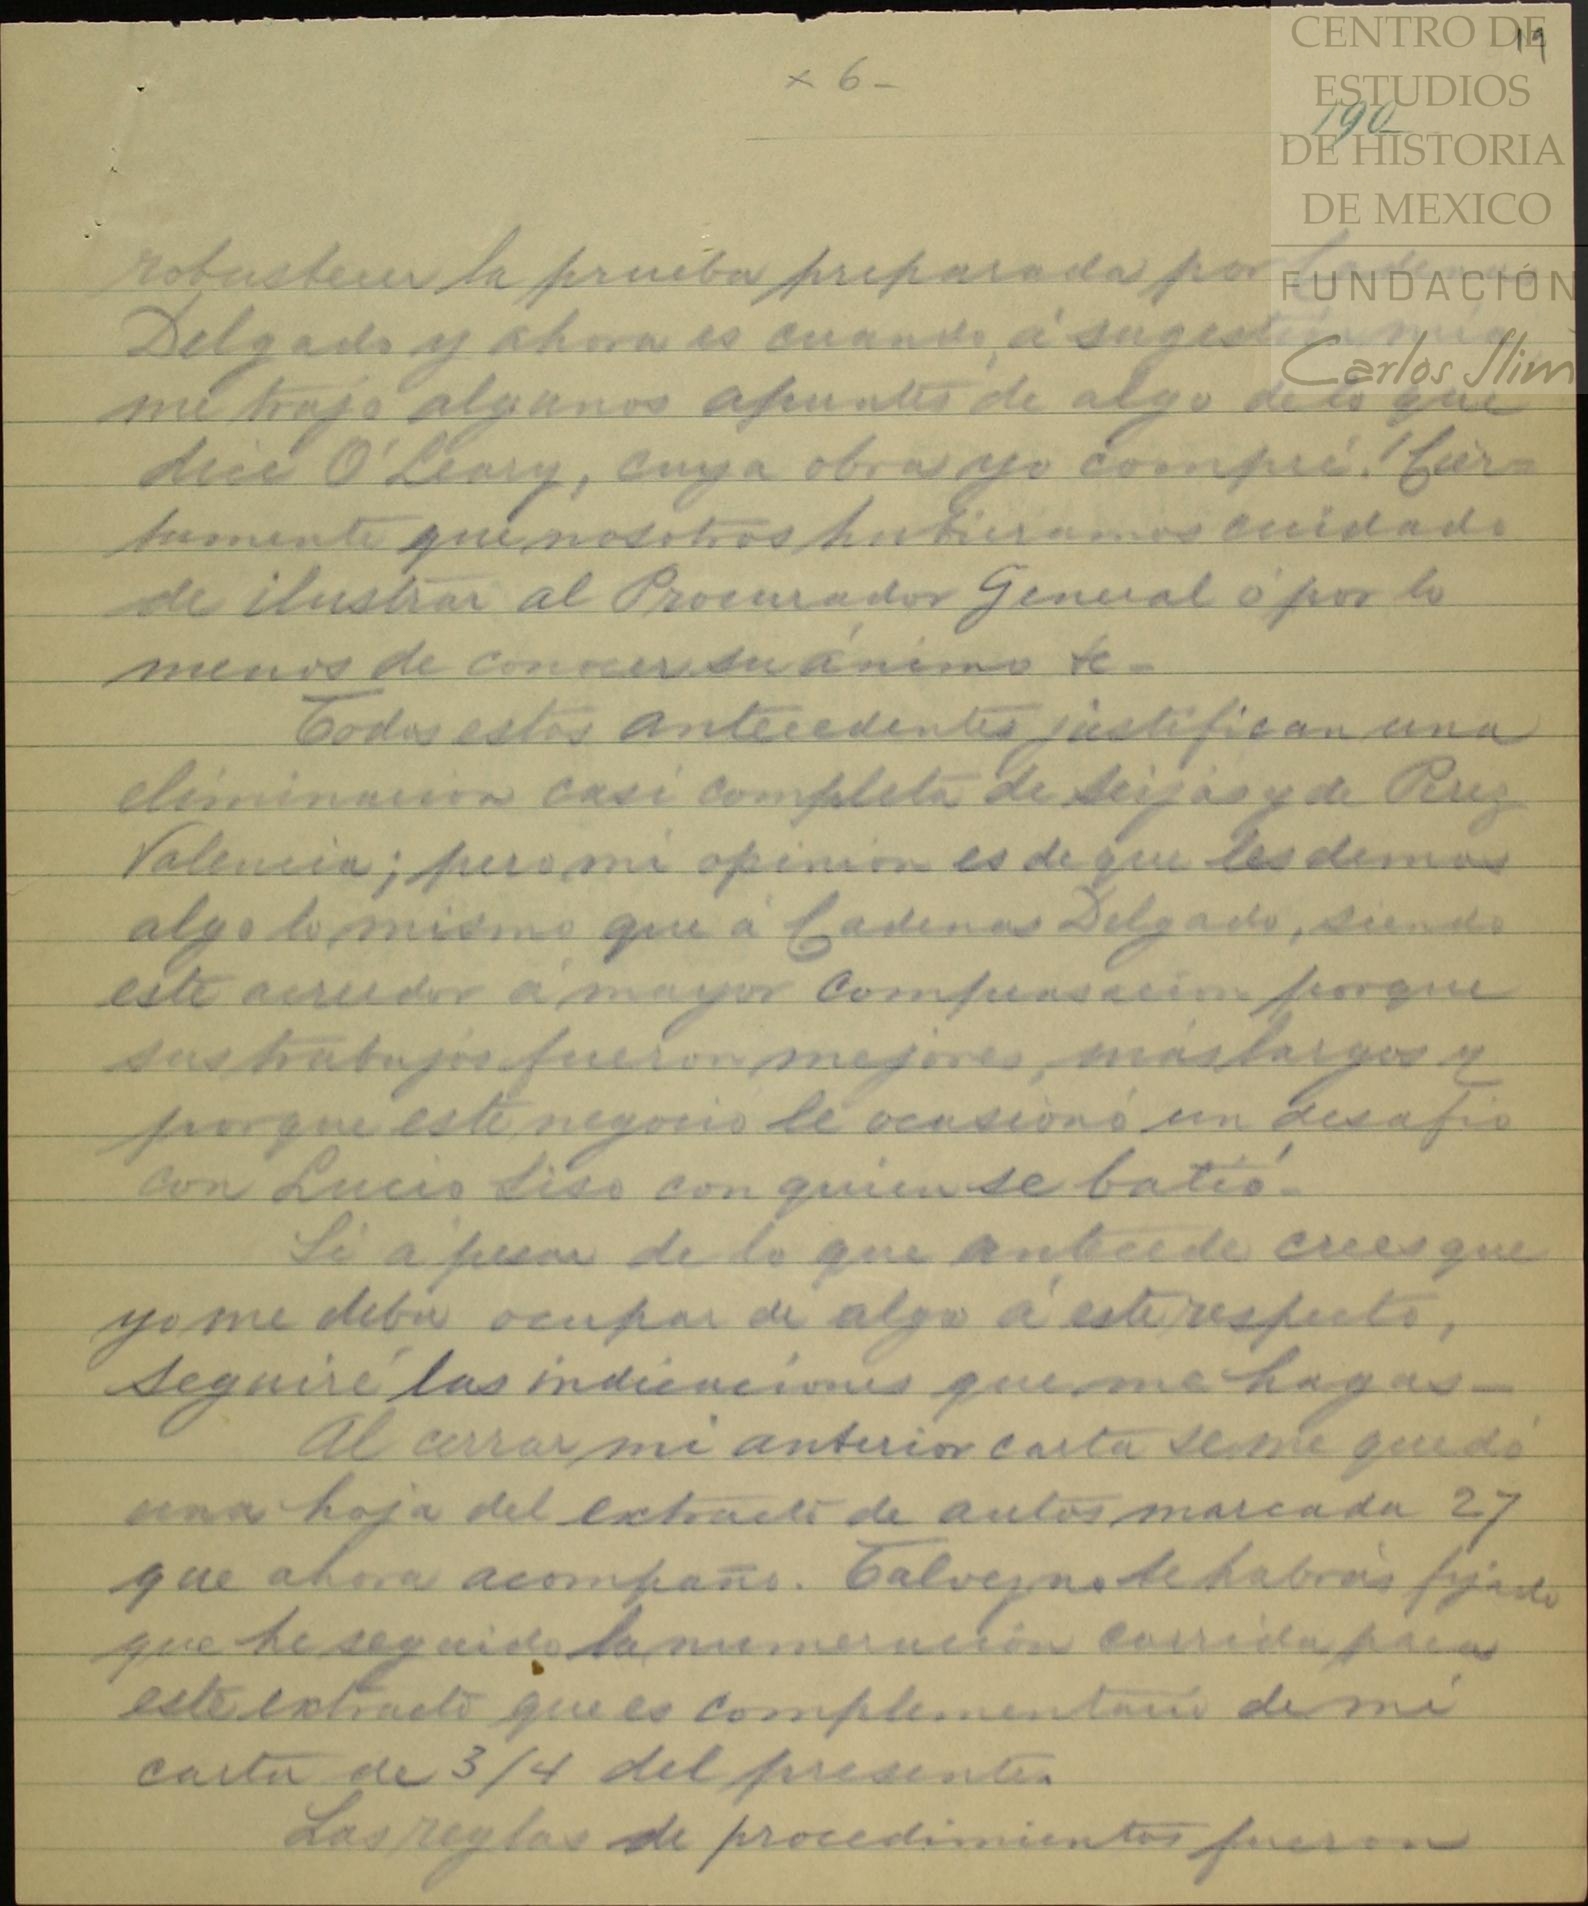 19
x 6 -
190
robustecer la prueba preparada por Cadenas
Delgado y ahora es cuando, á sugestión mía
me trajo algunos apuntes de algo de lo que
dice O'Leary, cuya obra yo compré. ! Cier-
tamente que nosotros hubieramos cuidado
de ilustrar al Procurador General ó por lo
menos de conocer su ánimo &-
Todos estos antecedentes justifican una
eliminacion casi completa de Seijas y de Perez
Valencia; pero mi opinion es de que les demos
algo lo mismo que á Cadenas Delgado, siendo
este acreedor á mayor compensacion porque
sus trabajos fueron mejores, más largos y
porque este negocio le ocasionó un desafio
con Lucio Siso con quien se batió-
Si á pesar de lo que antecede crees que
yo me deba ocupar de algo á este respecto,
seguiré las indicaciones que me hagas-
Al cerrar mi anterior carta se me quedó
una hoja del extracto de autos marcada 27
que ahora acompaño. Talvez no te habrás fijado
que he seguido la numeración corrida para
este extracto que es complementario de mi
carta de 3/4 del presente.
Las reglas de procedimientos fueron
CENTRO DE
ESTUDIOS
DE HISTORIA
DE MEXICO
FUNDACIÓN
Carlos Slim